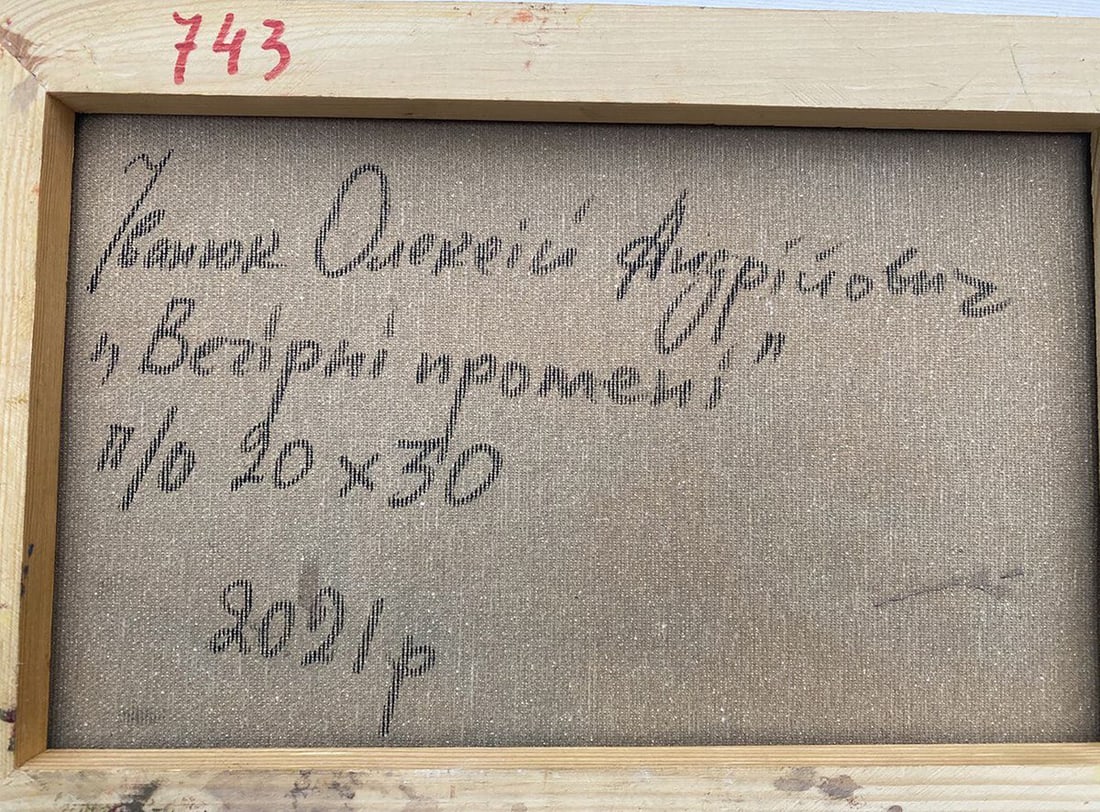 743
Іванюк Олексій Андрійович
„Вечірні промені"
п/о 20 х 30
2021 р